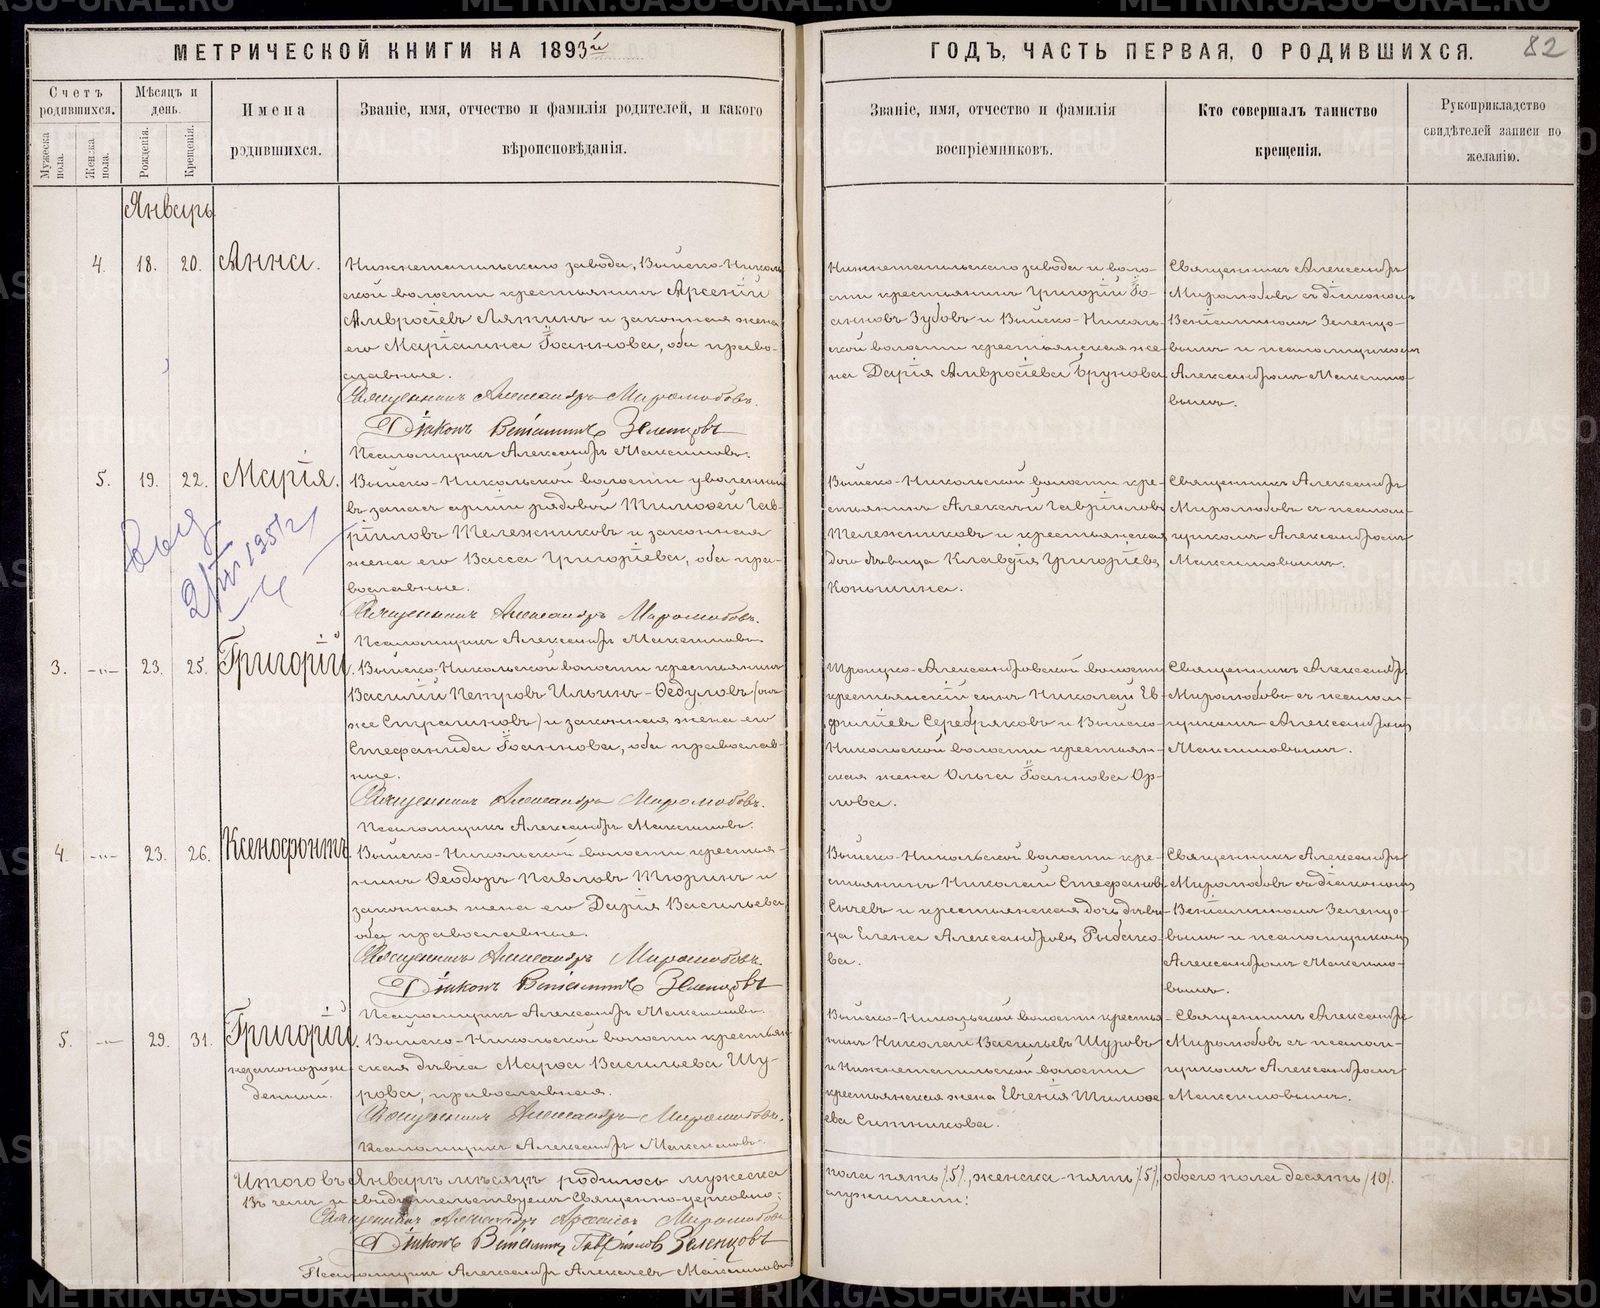 МЕТРИЧЕСКОЙ КНИГИ НА 1893й
ГОДЪ, ЧАСТЬ ПЕРВАЯ, О РОДИВШИХСЯ.
82
Счетъ родившихся.
Мужеска пола.
Женска пола.
Мѣсяцъ и день.
Рожденія.
Крещенія.
Имена
родившихся.
Званіе, имя, отчество и фамилія родителей, и какого
вѣроисповѣданія.
Званіе, имя, отчество и фамилія
воспріемниковъ.
Кто совершалъ таинство
крещенія.
Рукоприкладство
свидѣтелей записи по
желанію.
Январь
4. 18. 20. Анна.
Нижнетагильскаго завода, Выйско-Николь
ской волости крестьянинъ Арсеній
Амвросіевъ Ляпинъ и законная жена
его Маріанна Іоаннова, оба право-
славные.
Священникъ Александръ Миролюбовъ.
Діаконъ Веніаминъ Зеленцовъ
Псаломщикъ Александръ Максимовъ.
Нижнетагильскаго завода и воло-
сти крестьянинъ Григорій Іо-
анновъ Зубовъ и Выйско-Николь-
ской волости крестьянская же-
на Дарія Амвросіева Брунова
Священникъ Александръ
Миролюбовъ съ діакономъ
Веніаминомъ Зеленцо-
вымъ и псаломщикомъ
Александромъ Максимо-
вымъ.
5. 19. 22. Марія.
Выйско-Никольской волости уволенный
въ запасъ арміи рядовой Тимофей Гав-
ріиловъ Тележниковъ и законная
жена его Васса Григоріева, оба пра-
вославные.
Священникъ Александръ Миролюбовъ.
Псаломщикъ Александръ Максимовъ.
Выйско-Никольской волости кре-
стьянинъ Алексѣй Гавріиловъ
Тележниковъ и крестьянская
дочь дѣвица Клавдія Григоріева
Коньшина.
Священникъ Александръ
Миролюбовъ съ псалом-
щикомъ Александромъ
Максимовымъ.
3. -"- 23. 25. Григорій.
Выйско-Никольской волости крестьянинъ
Василій Пепуровъ Ильинъ-Ѳедуловъ (онъ
же Стралиновъ) и законная жена его
Стефанида Іоаннова, оба православ-
ные.
Священникъ Александръ Миролюбовъ.
Псаломщикъ Александръ Максимовъ.
Троицко-Александровской волости
крестьянскій сынъ Николай Ев-
фиміевъ Серебряковъ и Выйско-
Никольской волости крестьян-
ская жена Ольга Іоаннова Ор-
лова.
Священникъ Александръ
Миролюбовъ съ псалом-
щикомъ Александромъ
Максимовымъ.
4. -"- 23. 26. Ксенофонтъ.
Выйско-Никольской волости крестья-
нинъ Ѳеодоръ Павловъ Тюринъ и
законная жена его Дарія Васильева
оба православные.
Священникъ Александръ Миролюбовъ.
Діаконъ Веніаминъ Зеленцовъ
Псаломщикъ Александръ Максимовъ.
Выйско-Никольской волости кре-
стьянинъ Николай Стефановъ
Сычевъ и крестьянская дочь дѣви-
ца Елена Александрова Рыбако-
ва.
Священникъ Александръ
Миролюбовъ съ діакономъ
Веніаминомъ Зеленцо-
вымъ и псаломщикомъ
Александромъ Максимо-
вымъ.
5. -"- 29. 31. Григорій.
незаконорож-
денный.
Выйско-Никольской волости крестьян-
ская дѣвка Марѳа Васильева Щу-
рова, православная.
Священникъ Александръ Миролюбовъ.
Псаломщикъ Александръ Максимовъ.
Выйско-Никольской волости крестья-
нинъ Николай Васильевъ Щуровъ
и Нижнетагильской волости
крестьянская жена Евгенія Тимоѳе-
ева Ситникова.
Священникъ Александръ
Миролюбовъ съ псалом-
щикомъ Александромъ
Максимовымъ.
Итого въ Январѣ мѣсяцѣ родилось мужеска
пола пять /5/, женска пять /5/, обоего пола десять /10/.
Въ чемъ и свидѣтельствуемъ Священно-церковно-
служители:
Священникъ Александръ Миролюбовъ
Діаконъ Веніаминъ Гавріиловъ Зеленцовъ
Псаломщикъ Александръ Алексѣевъ Максимовъ
METRIKI.GASO-URAL.RU